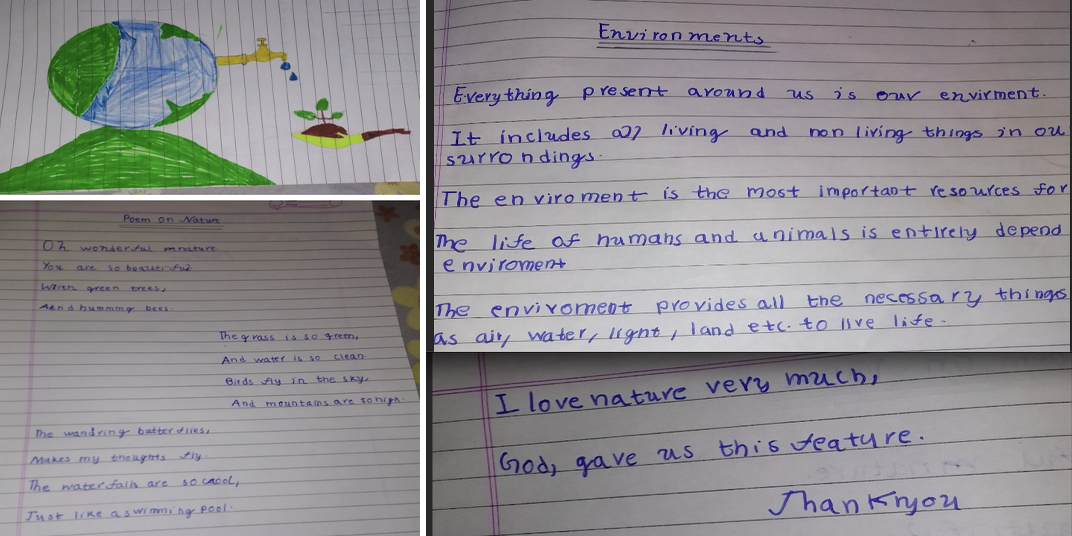 Environments
Everything present around us is our envirment.
It includes all living and non living things in ou
surrondings.
The enviroment is the most important resources for
The life of humans and animals is entirely depend
enviroment
The enviroment provides all the necessary things
as air, water, light, land etc. to live life.
Poem on Nature
Oh wonderful mnature
You are so beautiful
With green trees,
And humming bees.
The grass is so green,
And water is so clean.
Birds fly in the sky.
And mountains are so high.
The wandring butterflies,
Makes my thoughts fly.
The waterfalls are so cool,
Just like a swimming pool.
I love nature very much,
God, gave us this feature.
Thankyou